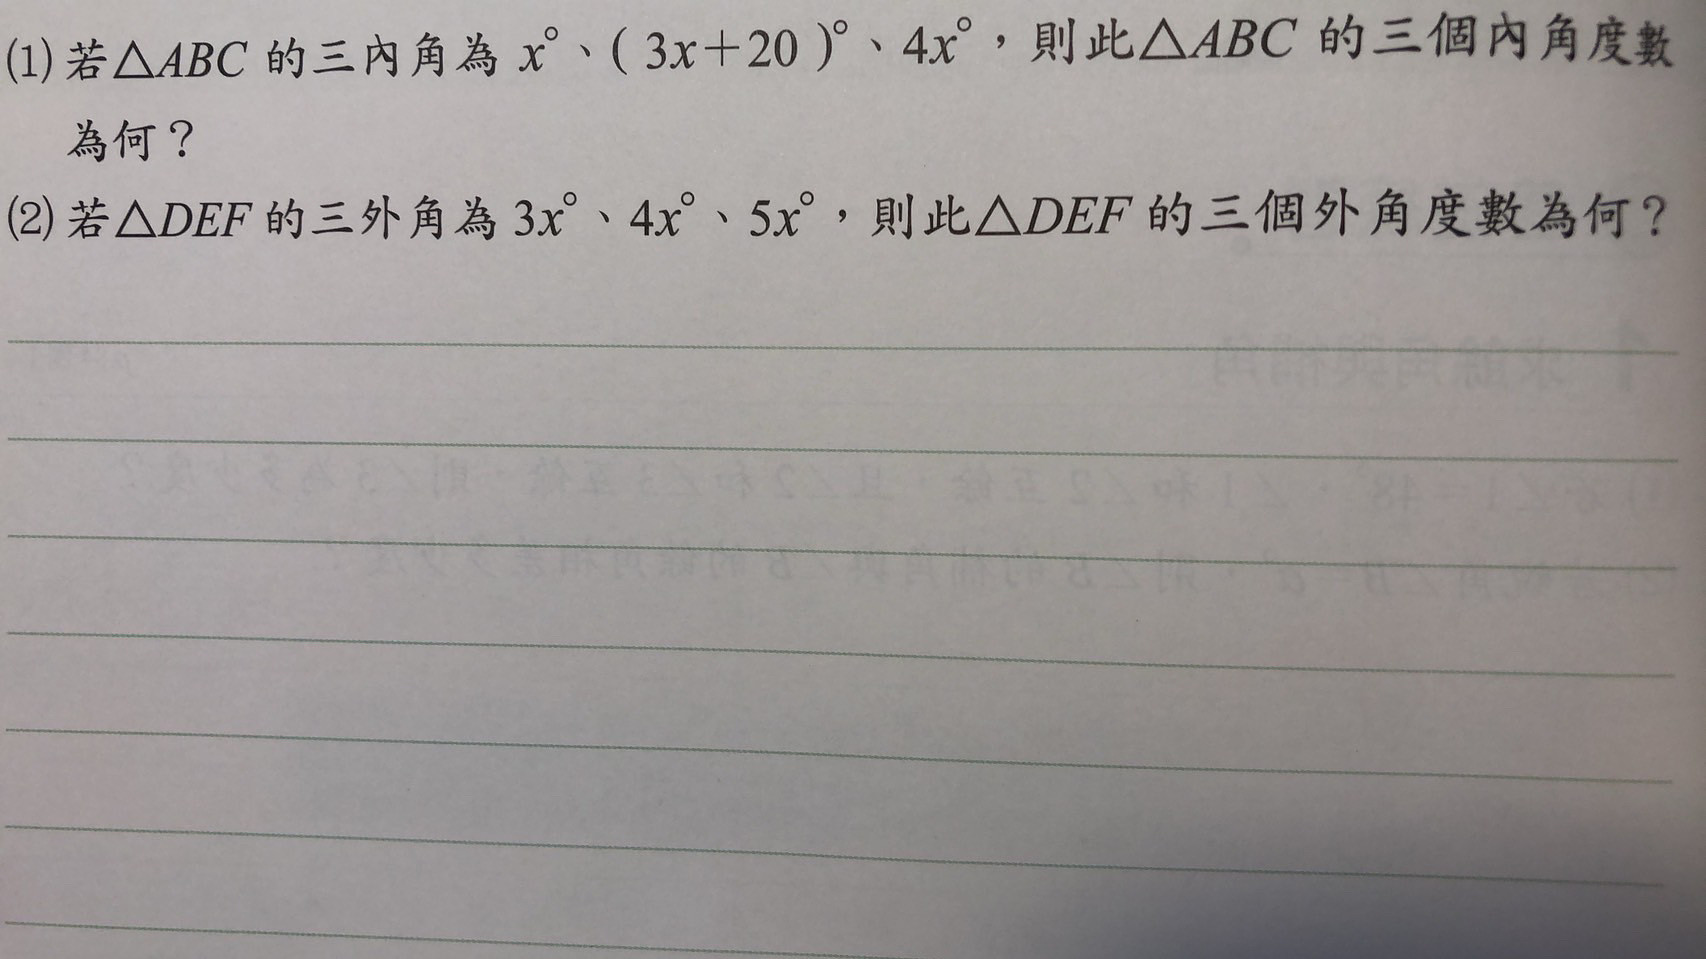 (1)若△ABC的三內角為x°、(3x+20)°、4x°，則此△ABC的三個內角度數
為何？
(2)若△DEF的三外角為3x°、4x°、5x°，則此△DEF的三個外角度數為何？